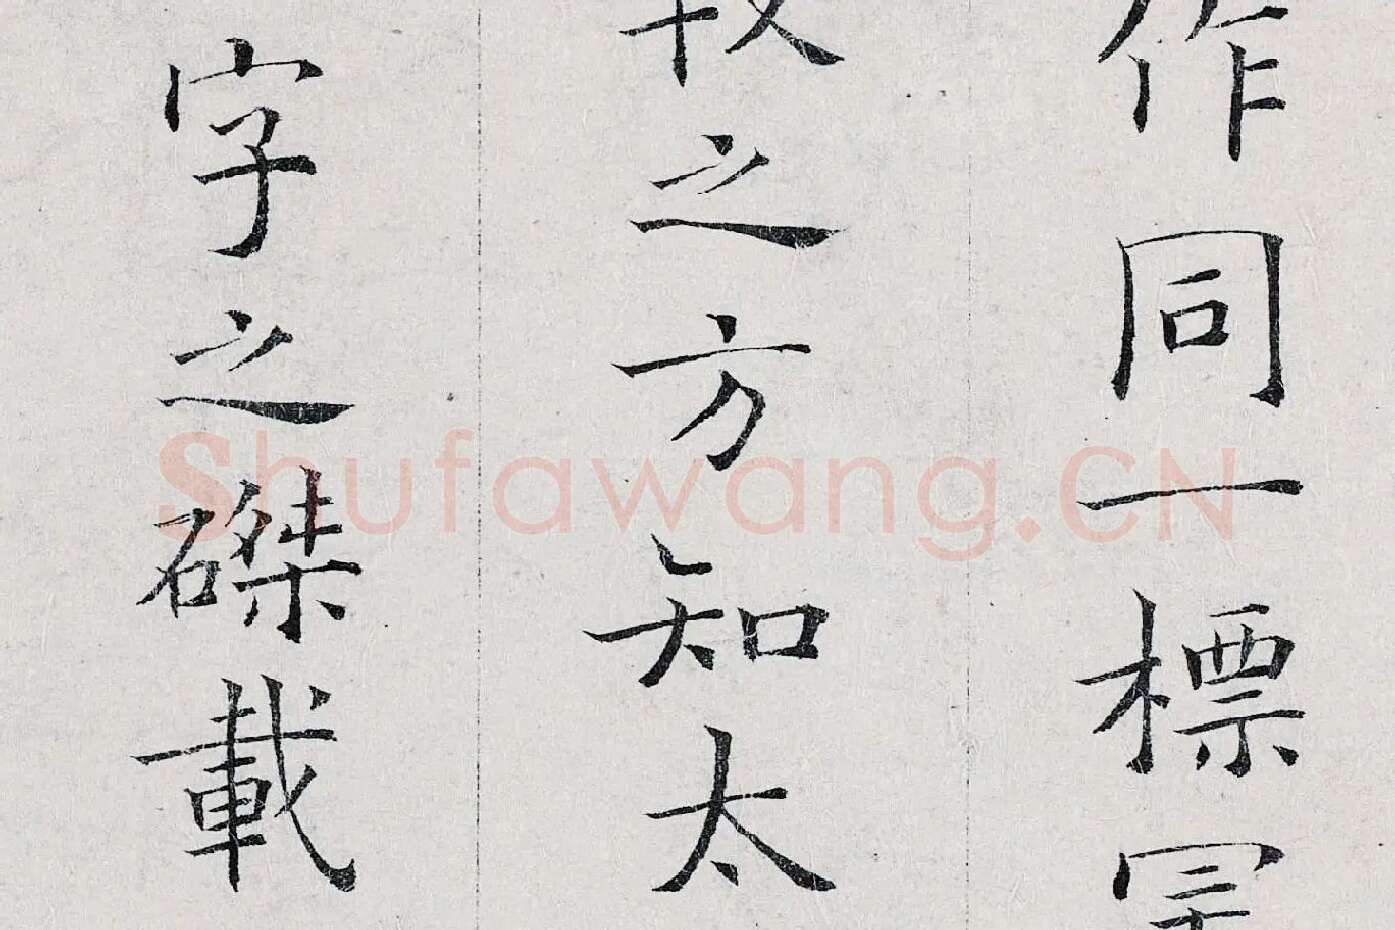 作同一標
之方知太
字之磔載
Shufawang.CN